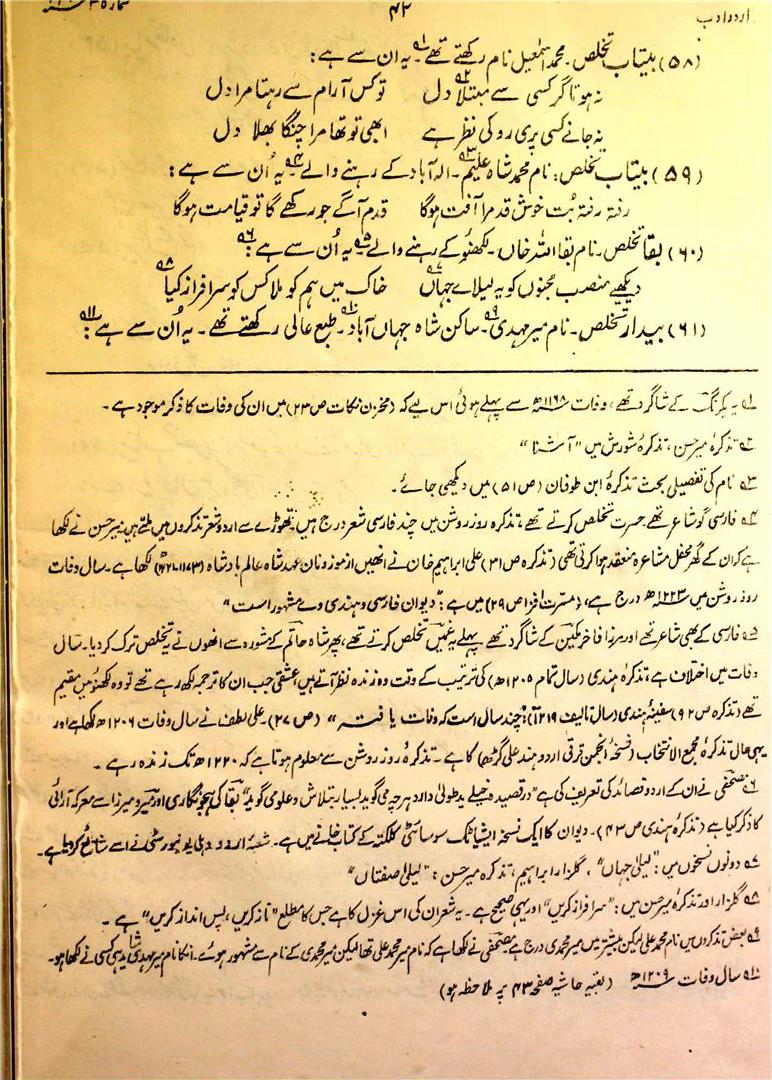 اردو ادب
۴۲
شمارہ ۳
(۵۸) بیتاب تخلص۔ محمد اسمٰعیل نام رکھتے تھے۔ یہ ان سے ہے:
نہ ہوتا گر کسی سے مبتلا دل    تو کس آرام سے رہتا مرا دل
نہ جانے کسی پری رو کی نظر ہے    ابھی تو تھا مرا چنگا بھلا دل
(۵۹) بیتاب تخلص: نام محمد شاہ علیم۔ الہ آباد کے رہنے والے۔ یہ اُن سے ہے:
رفتہ رفتہ بُت خوش قد مرا آفت ہوگا    قدم آگے جو رکھے گا تو قیامت ہوگا
(۶۰) بقا تخلص۔ نام بقا اللہ خاں۔ لکھنؤ کے رہنے والے۔ یہ اُن سے ہے:
دیکھیے منصب مجنوں کو یہ لیلاے جہاں    خاک میں ہم کو ملا کس کو سرافراز کیا
(۶۱) بیدار تخلص۔ نام میر مہدی۔ ساکن شاہ جہاں آباد۔ طبع عالی رکھتے تھے۔ یہ اُن سے ہے:
۱؎ یہ یکرنگ کے شاگرد تھے، وفات ۱۱۶۸ھ سے پہلے ہوئی اس لیے کہ (مخزن نکات ص ۲۳) میں ان کی وفات کا ذکر موجود ہے۔
۲؎ تذکرہ میر حسن، تذکرہ شورش میں "آشنا"
۳؎ نام کی تفصیلی بحث تذکرۂ ابن طوفان (ص ۵۱) میں دیکھی جائے۔
۴؎ فارسی گو شاعر تھے۔ حسرت تخلص کرتے تھے، تذکرہ روز روشن میں چند فارسی شعر درج ہیں۔ تھوڑے سے اردو شعر تذکروں میں ملتے ہیں۔ میر حسن نے لکھا
ہے کہ ان کے گھر محفل مشاعرہ منعقد ہوا کرتی تھی (تذکرہ ص ۳۱) علی ابراہیم خان نے انھیں از موزونان عہد شاہ عالم بادشاہ (۱۱۷۳) لکھا ہے۔ سال وفات
روز روشن میں ۱۲۲۳ھ درج ہے، (مسرت افزا ص ۲۹) میں ہے: "دیوان فارسی و ہندی وے مشہور است"
۵؎ فارسی کے بھی شاعر تھے اور مرزا فاخر مکین کے شاگرد تھے پہلے یہ غمیں تخلص کرتے تھے، پھر شاہ حاتم کے مشورہ سے انھوں نے یہ تخلص ترک کر دیا۔ سال
وفات میں اختلاف ہے، تذکرۂ ہندی (سال تمام ۱۲۰۵ھ) کی ترتیب کے وقت وہ زندہ نظر آتے ہیں، عشقی جب ان کا ترجمہ لکھ رہے تھے تو وہ لکھنؤ میں مقیم
تھے (تذکرہ ص ۹۲) سفینۂ ہندی (سال تالیف ۱۲۱۹): چند سال است کہ وفات یافتہ" (ص ۲۷)۔ علی لطف نے سال وفات ۱۲۰۶ھ لکھا ہے اور
یہی حال تذکرۂ مجمع الانتخاب (نسخۂ انجمن ترقی اردو ہند علی گڑھ) کا ہے۔ تذکرۂ روز روشن سے معلوم ہوتا ہے کہ ۱۲۲۰ھ تک زندہ رہے۔
۶؎ مصحفی نے ان کے اردو قصائد کی تعریف کی ہے "در قصیدہ خیلے ید طولیٰ دارد ہرچہ می گوید بسیار بتلاش و علومی گوید" بقا کی ہجو نگاری اور میر و میرزا سے معرکہ آرائی
کا ذکر کیا ہے (تذکرہ ہندی ص ۴۳)۔ دیوان کا ایک نسخہ ایشیاٹک سوسائٹی کلکتہ کے کتاب خانے میں ہے۔ شعبۂ اردو دہلی یونیورسٹی نے اسے شائع کر دیا ہے۔
۷؎ دونوں نسخوں میں: "لیلیٰ جہاں"، گلزار ابراہیم، تذکرہ میر حسن: "لیلیٰ صفتاں"
۸؎ گلزار اور تذکرۂ میر حسن میں: "سرافراز کریں" اور یہی صحیح ہے۔ یہ شعر ان کی اس غزل کا ہے جس کا مطلع "ناز کریں، پس انداز کریں" ہے۔
۹؎ بعض تذکروں میں نام محمد علی لیکن بیشتر میں میر محمدی درج ہے مصحفی نے لکھا ہے کہ نام میر محمد علی تھا لیکن میر محمدی کے نام سے مشہور ہوئے۔ انکا نام میر مہدی شاید ہی کسی نے لکھا ہو۔
۱۰؎ سال وفات ۱۲۰۹ھ (بقیہ حاشیہ صفحہ ۴۳ پر ملاحظہ ہو)